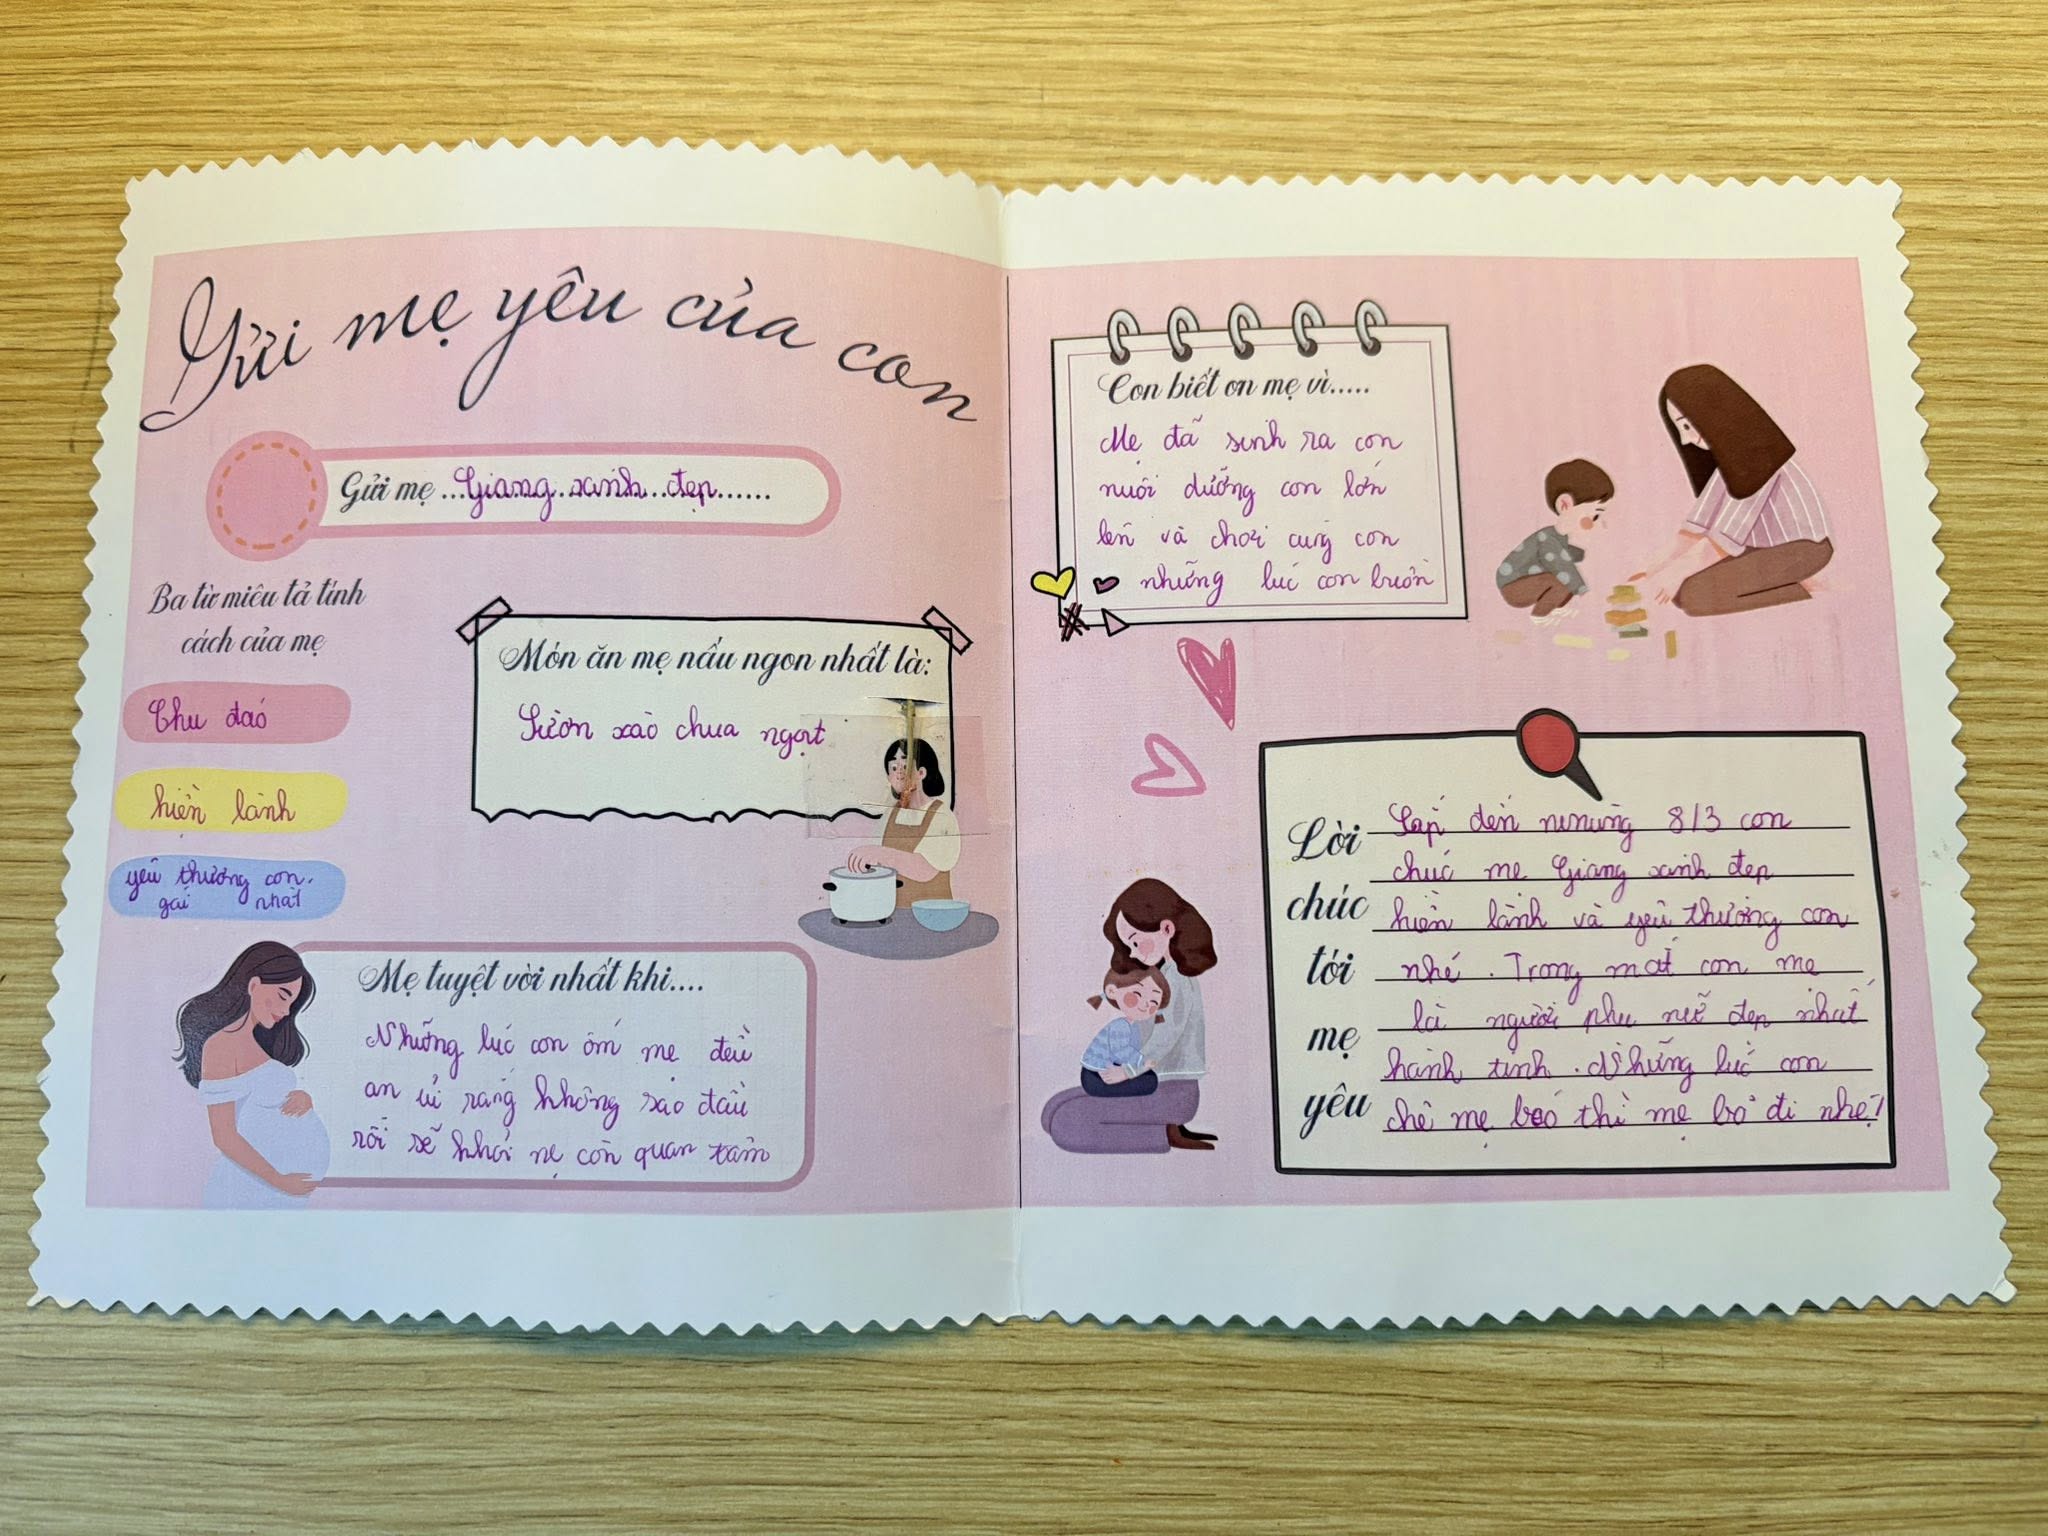 Gửi mẹ yêu của con
Gửi mẹ ...Giang xinh đẹp......
Ba từ miêu tả tính
cách của mẹ
Chu đáo
hiền lành
yêu thương con
gái nhất
Món ăn mẹ nấu ngon nhất là:
Sườn xào chua ngọt
Mẹ tuyệt vời nhất khi....
Những lúc con ốm mẹ đều
an ủi rằng không sao đâu
rồi sẽ khỏi mẹ còn quan tâm
Con biết ơn mẹ vì.....
Mẹ đã sinh ra con
nuôi dưỡng con lớn
lên và chơi cùng con
những lúc con buồn
Lời chúc tới mẹ yêu
Sắp đến 8/3 con
chúc mẹ Giang xinh đẹp
hiền lành và yêu thương con
nhé. Trong mắt con mẹ
là người phụ nữ đẹp nhất
hành tinh. Những lúc con
chê mẹ béo thì mẹ bỏ đi nhé!